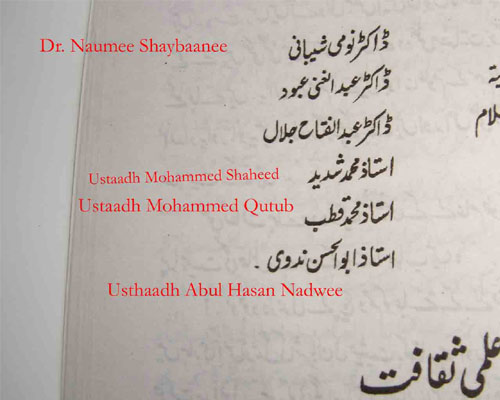 Dr. Naumee Shaybaanee
ڈاکٹر نومی شیبانی
ڈاکٹر عبدالغنی عبود
ڈاکٹر عبدالفتاح جلال
لام
Ustaadh Mohammed Shaheed
استاذ محمد شدید
Ustaadh Mohammed Qutub
استاذ محمد قطب
استاذ ابوالحسن ندوی .
Usthaadh Abul Hasan Nadwee
علمی ثقافت